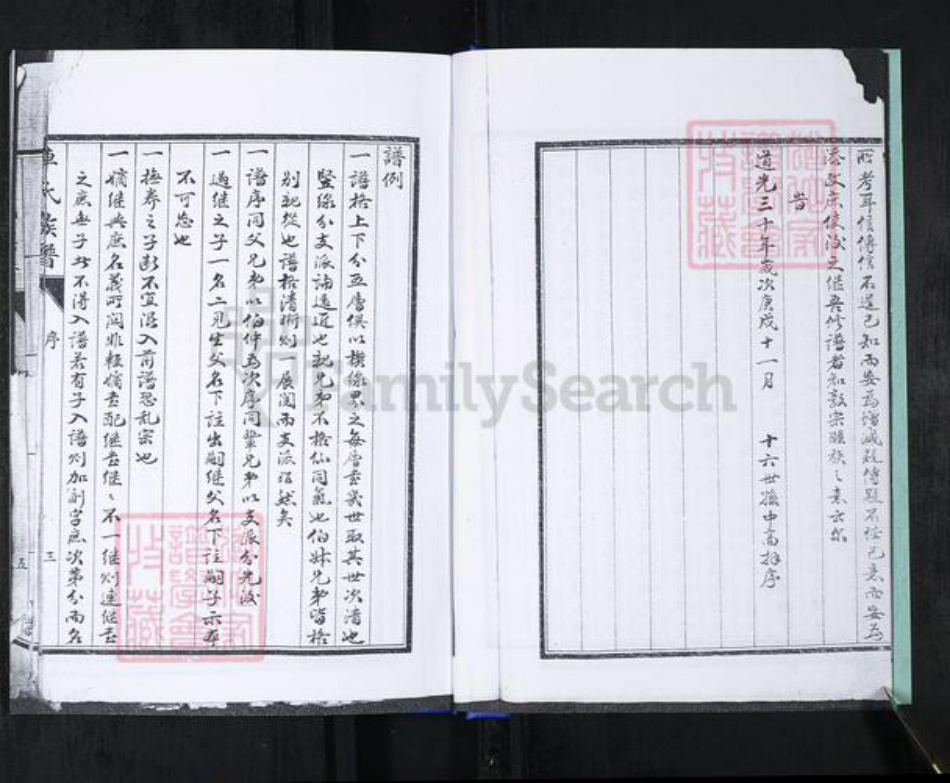 所考耳信傳信不邅已知而妄爲增減疑傳疑不任己意而妄爲
湊文庶後淺之繼吾修譜者知敦宗睦族之意云尔
旹
道光三十年歲次庚戌十一月 十六世孫中高拜序
譜例
一譜格上下分五層俱以橫線界之每層書幾世取其世次清也
竪線分支派論遠近也親兄弟不格似同氣也伯姊兄弟皆格
別親從也譜格清晰則一展閱而支派了然矣
一譜序同父兄弟以伯仲爲次序同輩兄弟以支派分先後
一過継之子一名二見生父名下註出嗣継父名下註嗣子示本
不可忘也
一撫养之子断不宜混入前譜恐乱宗也
一嫡継與庶名義所関非輕嫡書配継書継々不一継則連継書
之庶無子者不得入譜若有子入譜則加副字庶次第分而名
氏族譜
序
三
五
FamilySearch